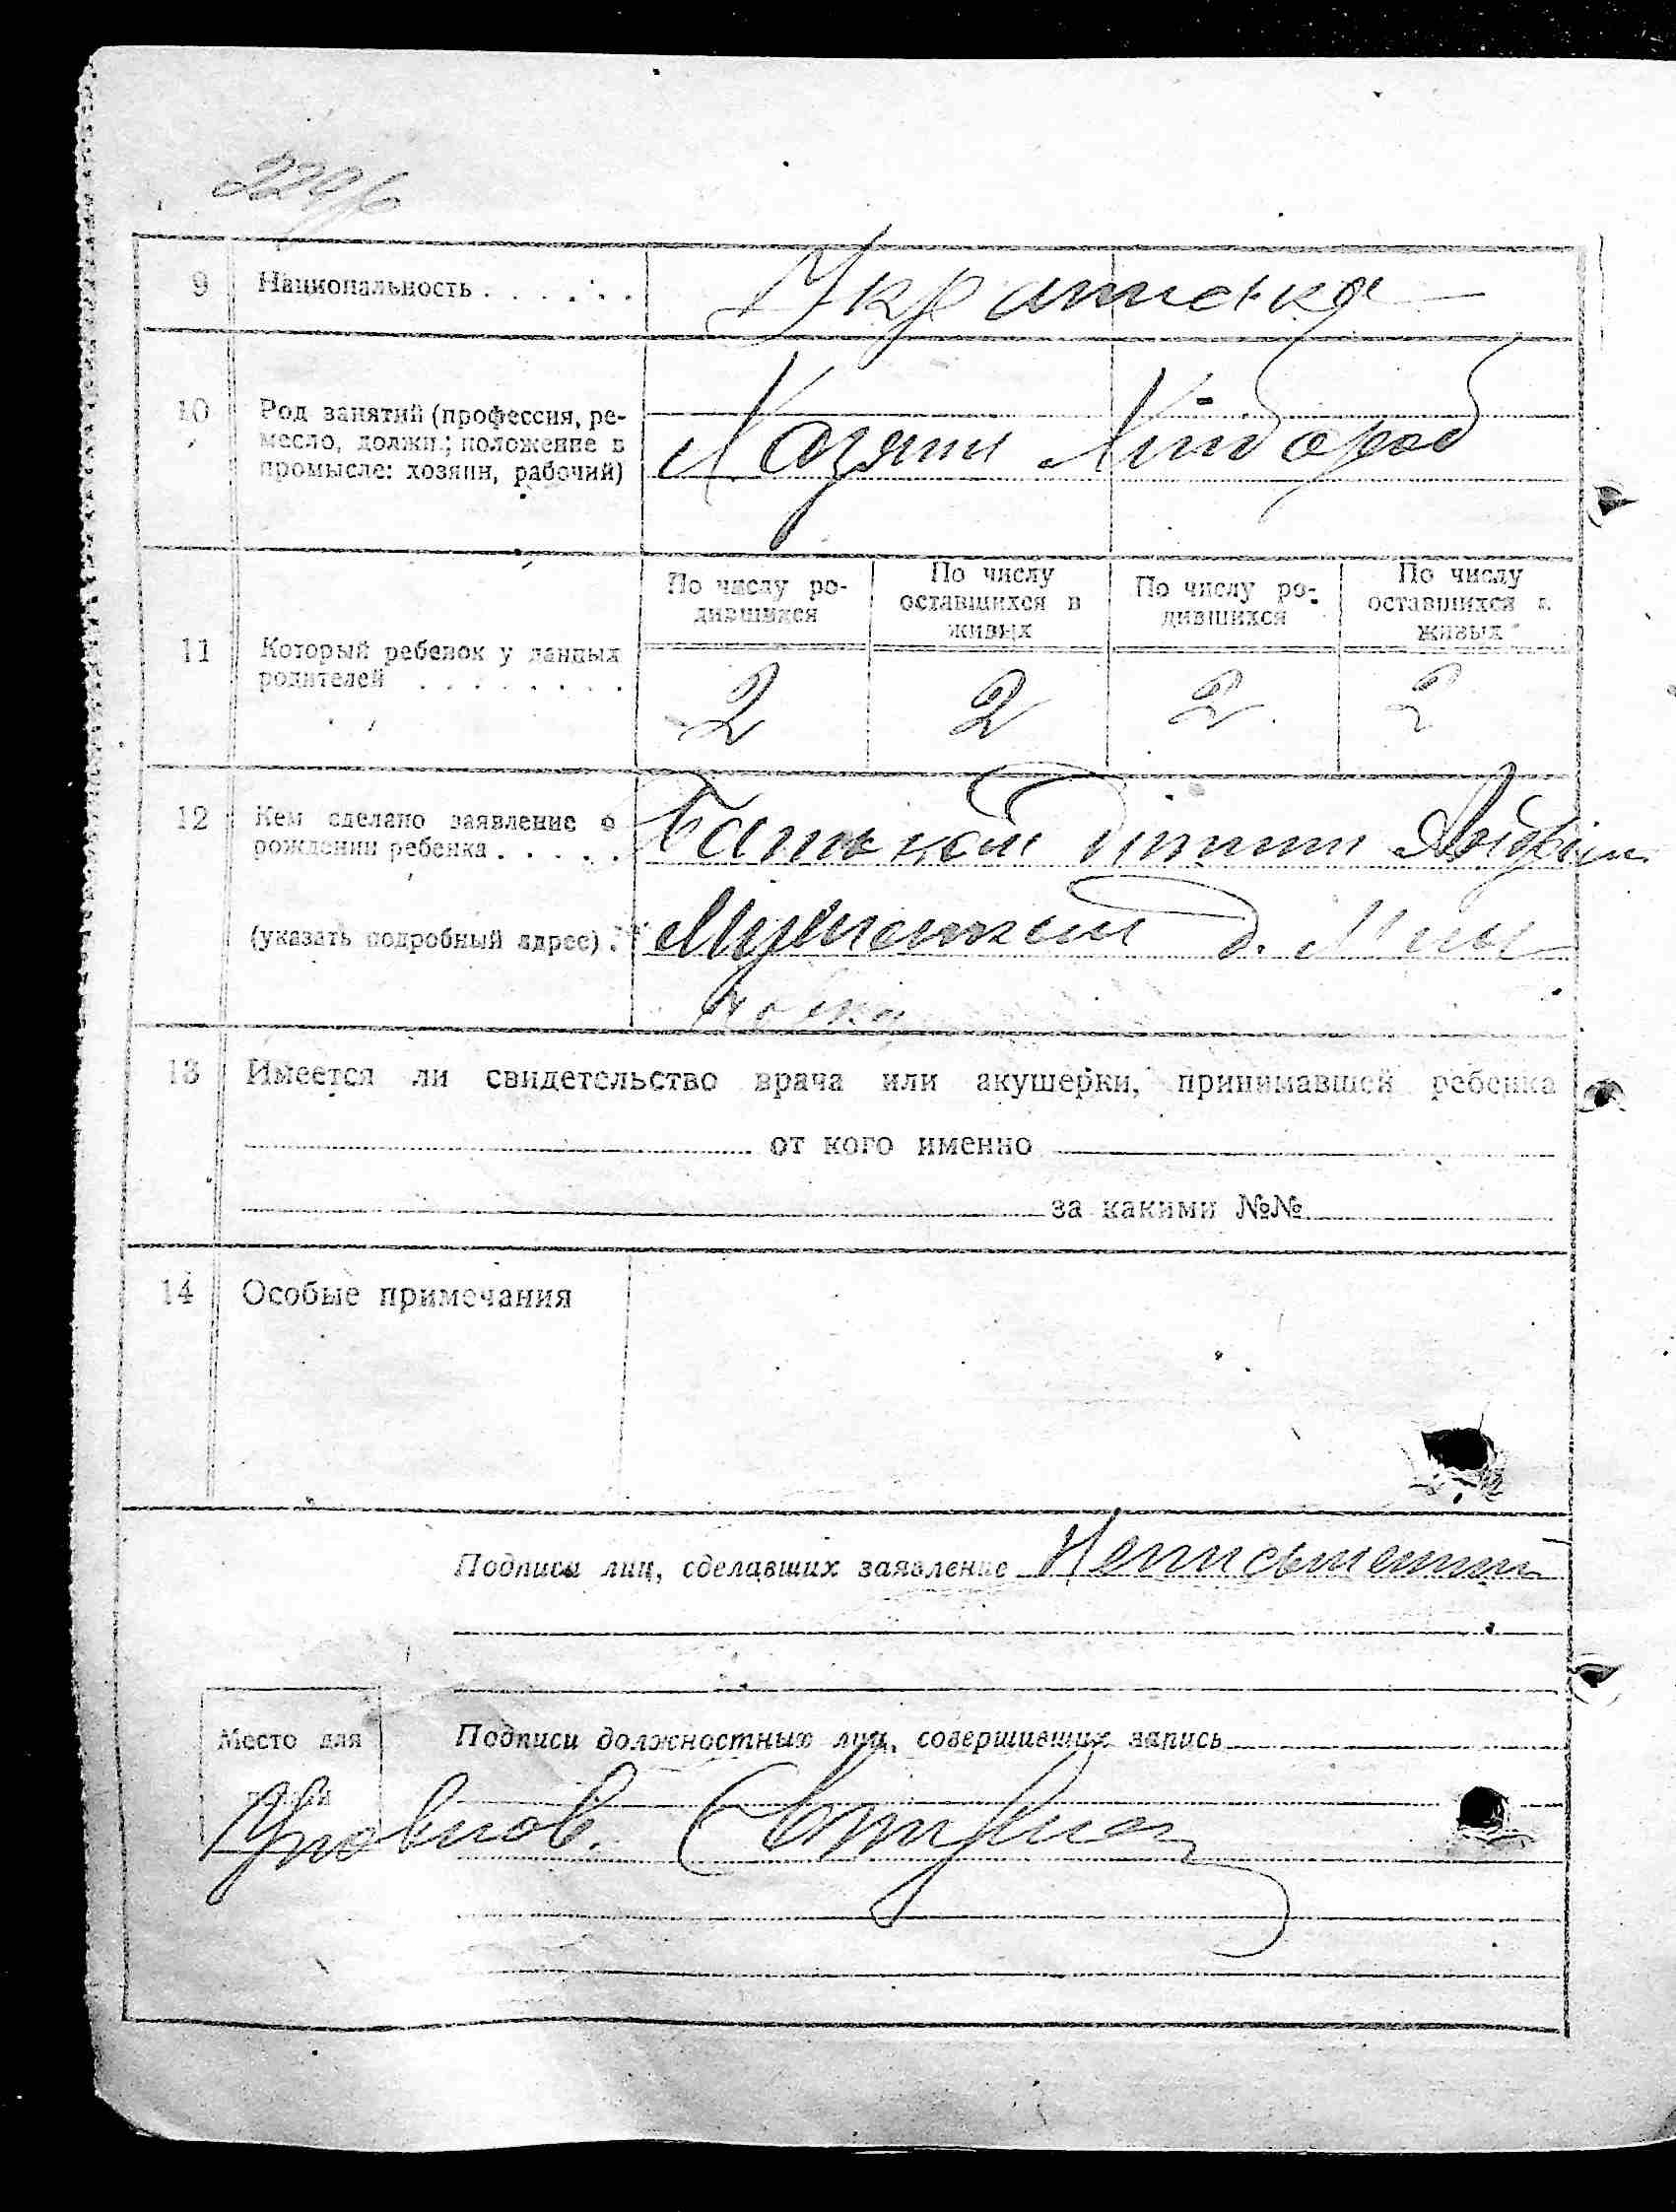 9 Национальность . . . . . . Українська
10 Род занятий (профессия, ре-
месло, должн.; положение в
промысле: хозяин, рабочий)
Хозяин Хлибороб
11 Который ребенок у данных
родителей . . . . . . . .
По числу ро-
дившихся
По числу
оставшихся в
живых
По числу ро-
дившихся
По числу
оставшихся в
живых
2 2 2 2
12 Кем сделано заявление о
рождении ребенка . . . . .
Батьком дитини
(указать подробный адрес) .
д.
13 Имеется ли свидетельство врача или акушерки, принимавшей ребенка
от кого именно
за какими №№
14 Особые примечания
Подписи лиц, сделавших заявление Неписьменний
Место для
печати
Подписи должностных лиц, совершивших запись
Уповнов.